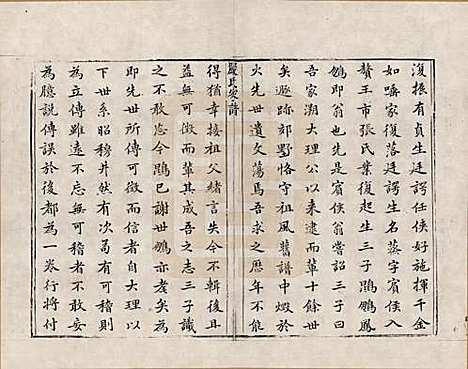 復振有貞生廷諤任俠好施揮千金
如嗃家復落廷諤生名蒸字賓侯入
贅王市張氏業復起生三子鵑鵬鳳
鵬即翁也先是賓侯翁嘗詔三子曰
吾家溯大理公以來逮而輩十餘世
矣遯跡郊墅恪守祖風舊譜中燬於
火先世遺文蕩焉吾求之歷年不能
嚴氏家譜
得猶幸接祖父緒言失今不輯後且
益無可徵而輩其成吾之志三子識
之不敢忘今鵑已謝世鵬亦耄矣為
即先世所可徵而信者自大理公以
下世系昭穆井然有次曷有可稽則
為立傳雖遠不忘無可稽者不敢妄
為臆說傳誤於後都為一卷行將付